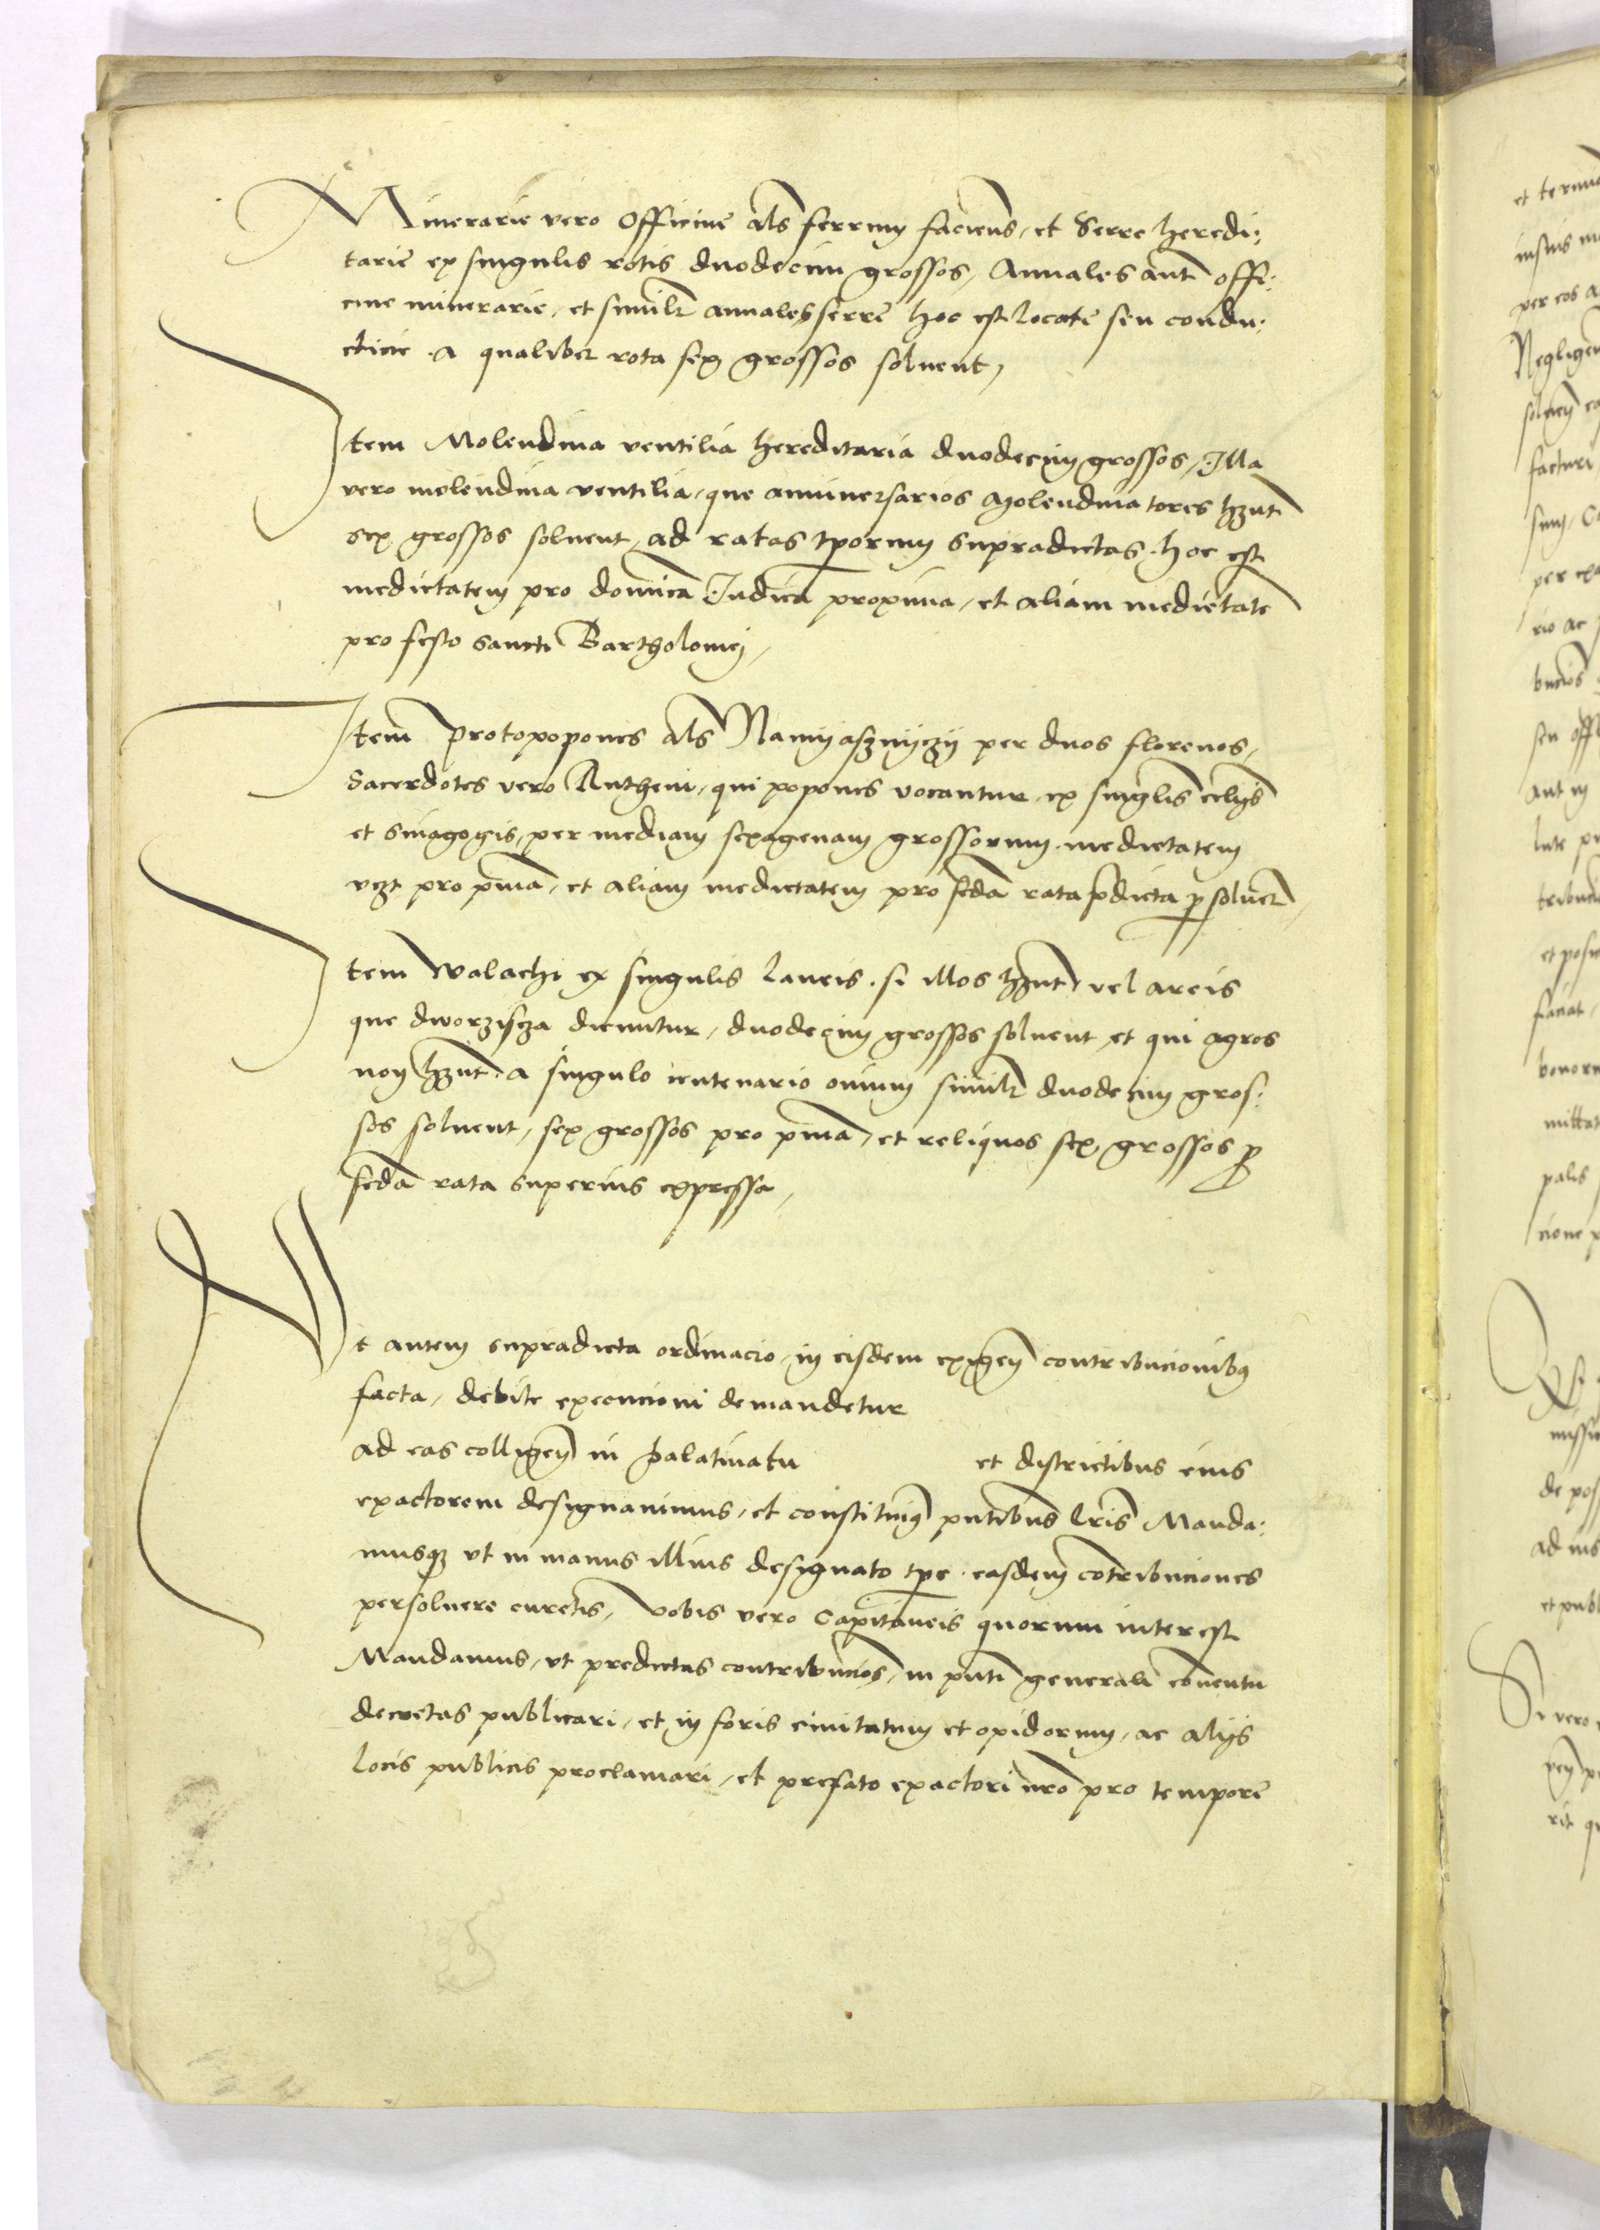 Minerarie vero Officine als ferrum faciens, et Serre heredi:
tarie ex singulis rotis duodecim grossos, Annales aut offi:
cine minerarie, et similr annales serre hoc est locate seu condu:
cticie. a qualibet rota sex grossos soluent,
Item Molendina ventilia hereditaria duodecim grossos, Illa
vero molendina ventilia, que anniuersarios Molendinatores hnt
sex grossos soluent, ad ratas tporum supradictas. hoc est
medietatem pro dominica Iudica proxima, et aliam medietate
pro festo sancti Bartholomej,
Item Protopopones als Namyasznyczy per duos florenos,
Sacerdotes vero Rutheni, qui popones vocantur, ex singulis eclys
et sinagogis, per mediam sexagenam grossorum. medietatem
vzt pro pma, et aliam medietatem pro secda rata pdicta psoluet,
Item Walachi ex singulis laneis. si illos hnt, vel areis
que dworzisza dicuntur, duodecim grossos soluent, et qui agros
non hnt. a singulo centenario ouium similr duodecim gros:
sos soluent, sex grossos pro pma, et reliquos sex grossos p
secda rata superius expressa,
Ut autem supradicta ordinacio, in eisdem exigen contribucionibus
facta, debite execucioni demandetur
ad eas colligen in palatinatu et districtibus eius
exactorem designauimus, et constituimus pntibus lris Manda:
musque vt in manus illius designato tpe. easdem contribuciones
persoluere curetis, Vobis vero Capitaneis quorum interest
Mandamus, vt predictas contribucios, in pnti generali conuentu
decretas publicari, et in foris ciuitatum et opidorum, ac alijs
locis publicis proclamari, et prefato exactori nro pro tempore